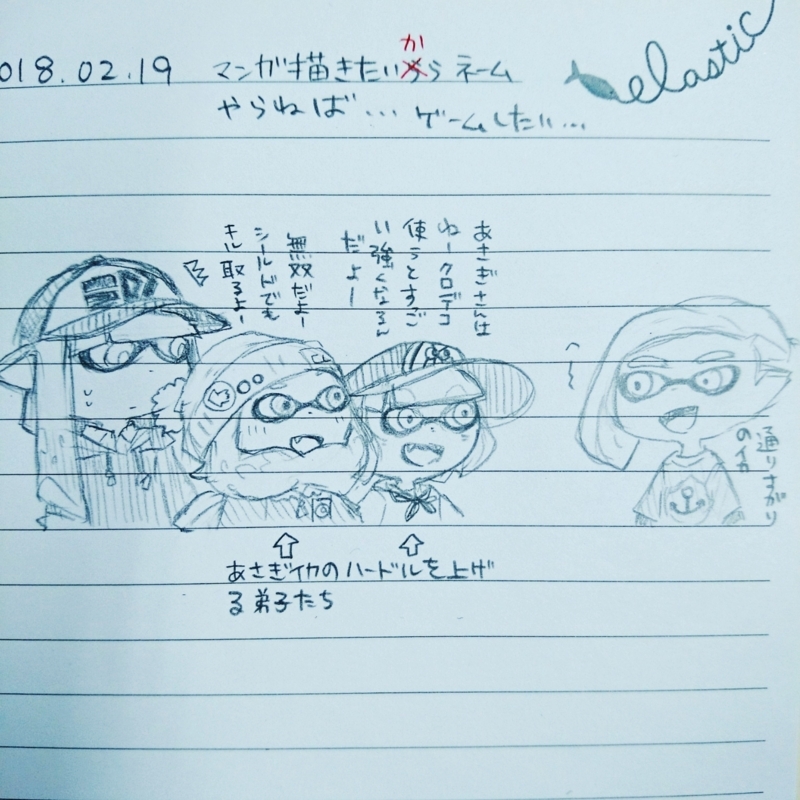 018.02.19 マンガ描きたいから ネーム
やらねば… ゲームしたい…
elastic
あさぎさんは
ねークロデコ
使うとすご
い強くなるん
だよー
無双だよー
シールドでも
キル取るよー
通りすがり
のイカ
あさぎイカのハードルを上げ
る弟子たち